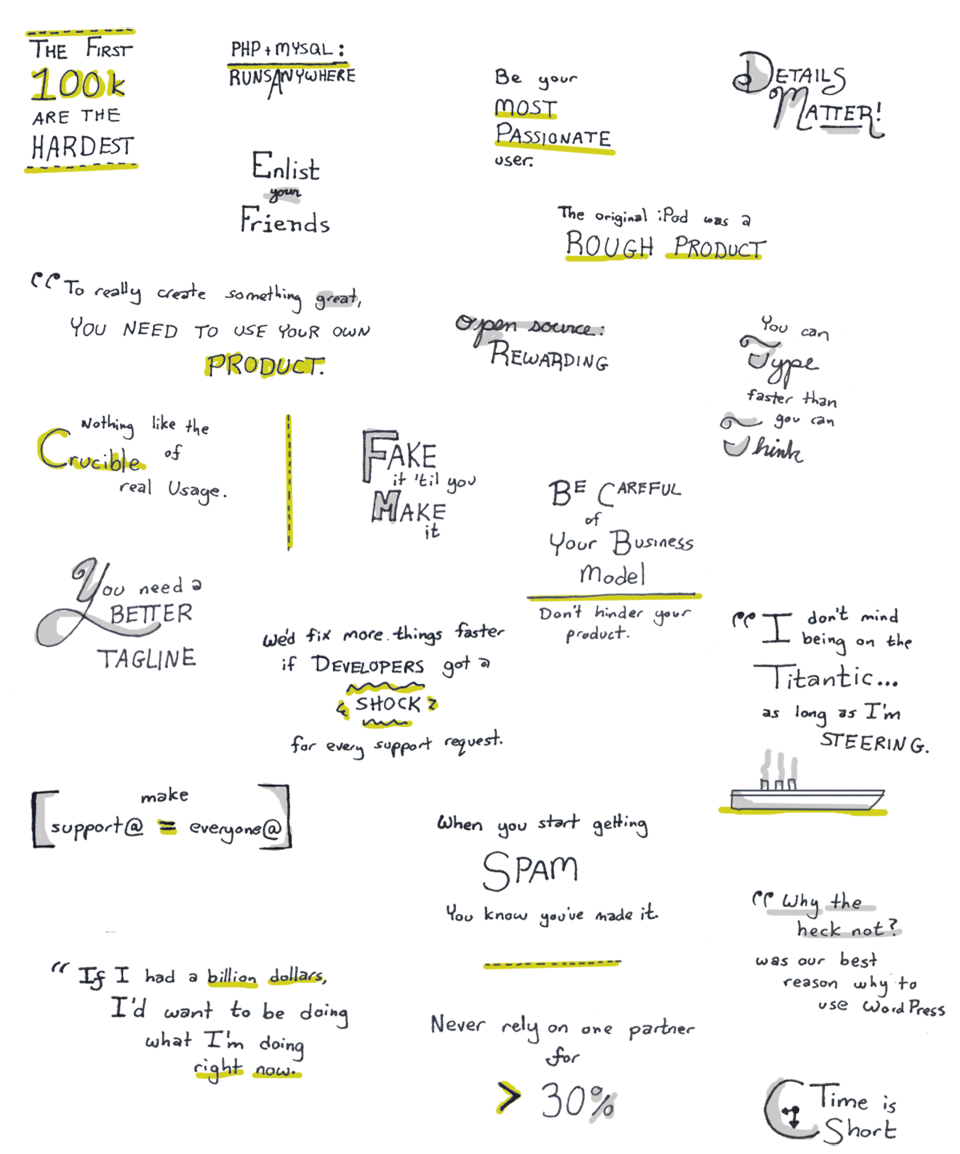 THE FIRST
100k
ARE THE
HARDEST
PHP + MYSQL:
RUNS ANYWHERE
Be your
MOST
PASSIONATE
user.
DETAILS
MATTER!
Enlist
your
Friends
The original iPod was a
ROUGH PRODUCT
“To really create something great,
YOU NEED TO USE YOUR OWN
PRODUCT.
Open source:
REWARDING
You can
Type
faster than
you can
Think
Nothing like the
Crucible of
real Usage.
FAKE
it 'til you
MAKE
it
BE CAREFUL
of
Your Business
Model
Don't hinder your
product.
You need a
BETTER
TAGLINE
We'd fix more things faster
if DEVELOPERS got a
SHOCK
for every support request.
“I don't mind
being on the
Titantic...
as long as I'm
STEERING.
make
support@ = everyone@
When you start getting
SPAM
You know you've made it.
“Why the
heck not?
was our best
reason why to
use WordPress
“If I had a billion dollars,
I'd want to be doing
what I'm doing
right now.
Never rely on one partner
for
> 30%
Time is
Short